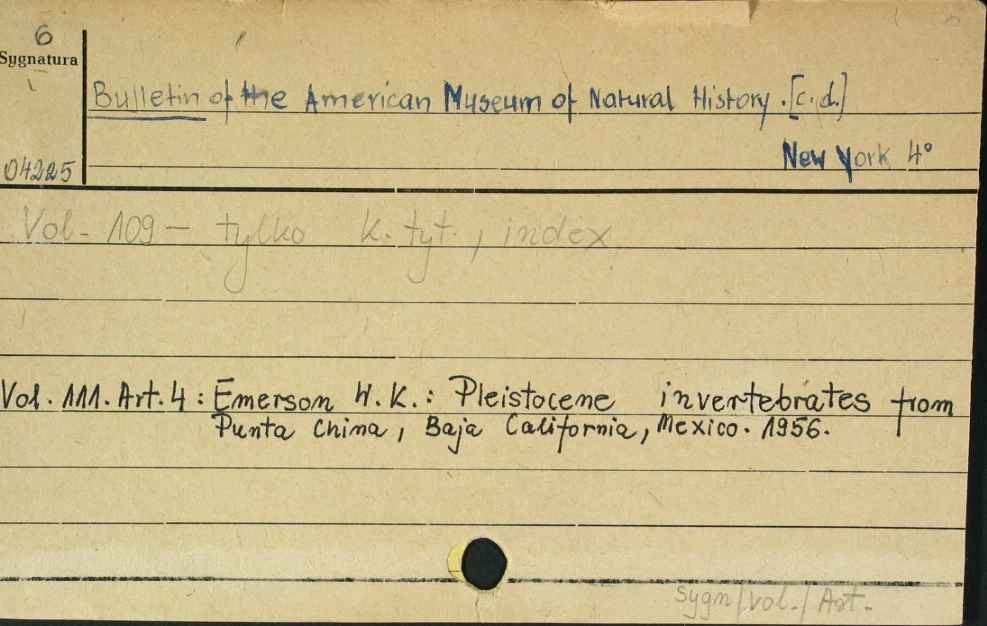 6
Sygnatura
Bulletin of the American Museum of Natural History. [c.d.]
New York 4°
04225
Vol. 109 – tylko k. tyt., index
Vol. 111. Art. 4 : Emerson W. K.: Pleistocene invertebrates from
Punta China, Baja California, Mexico. 1956.
sygn/vol./Art.